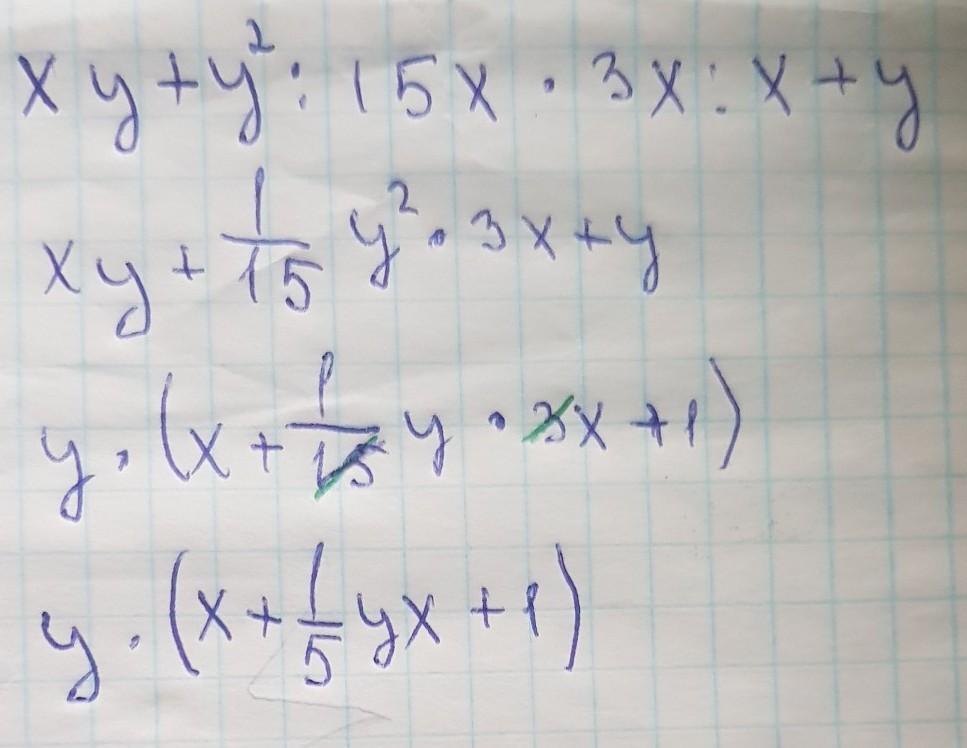 xy+y²:15x·3x:x+y
xy+1/15 y²·3x+y
y·(x+1/15 y·3x+1)
y·(x+1/5 yx+1)